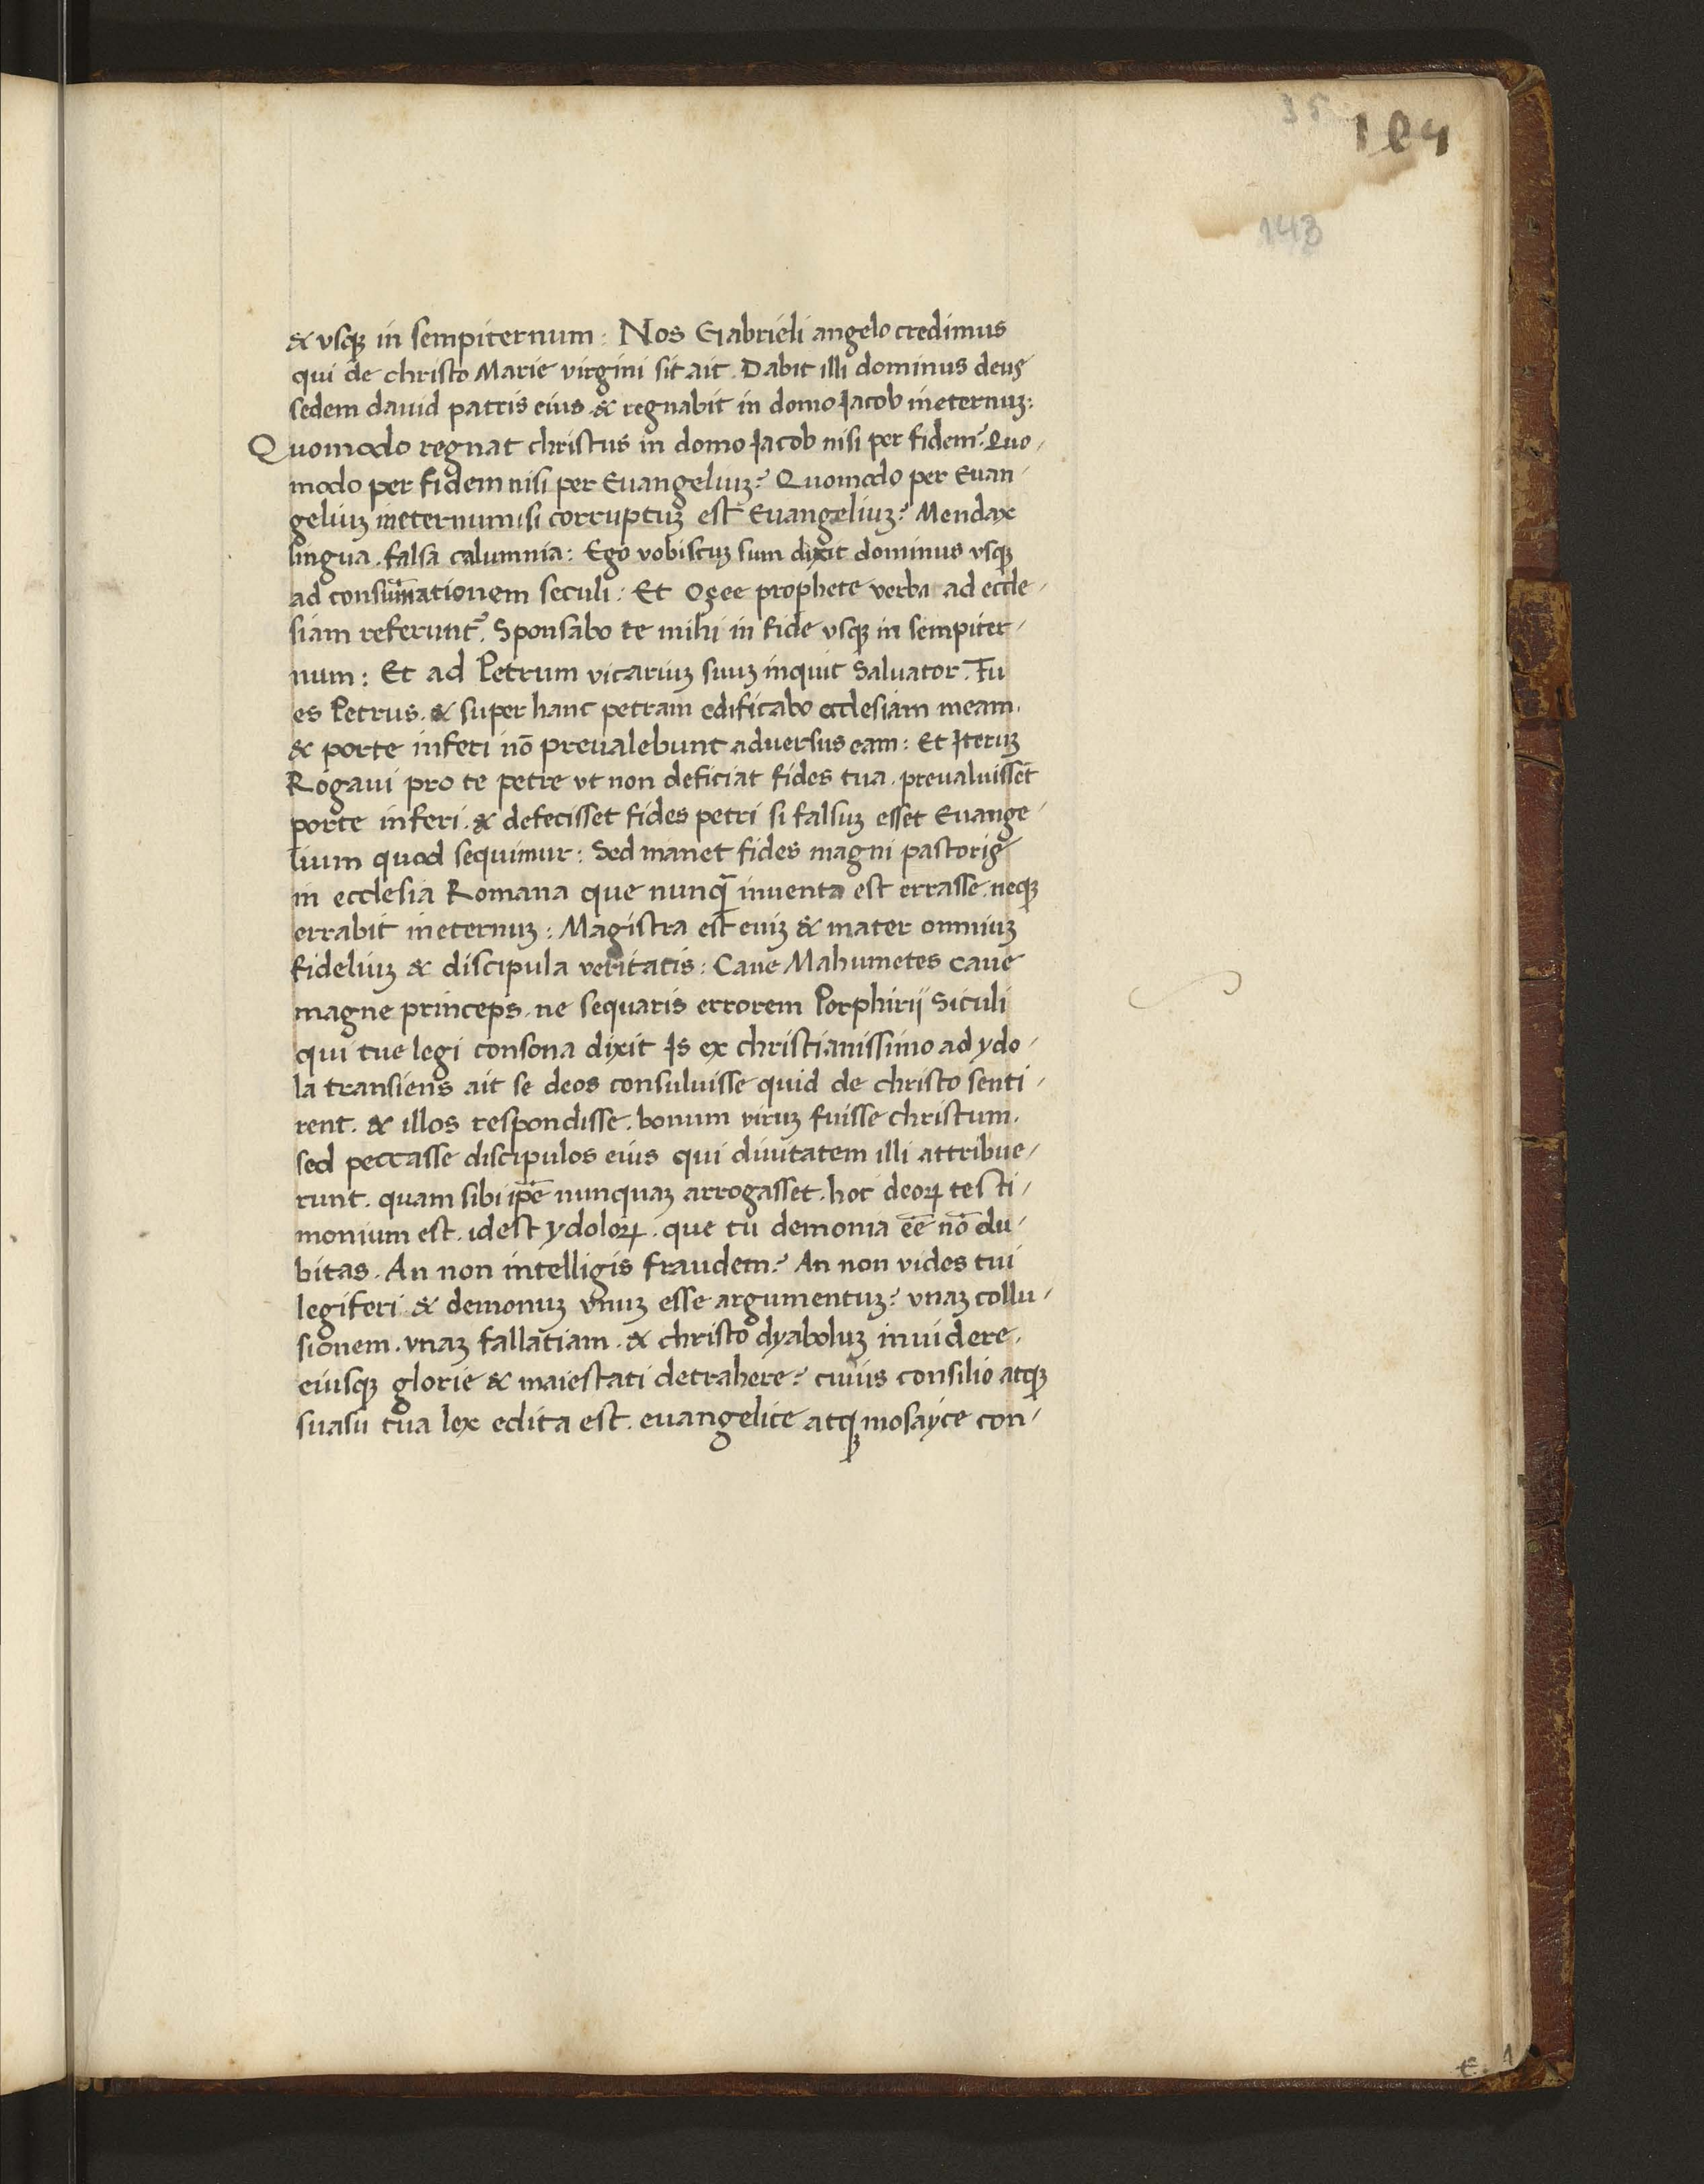 35
104
143
& vsqꝫ in sempiternum: Nos Gabrieli angelo credimus
qui de christo Marie virgini sit ait. Dabit illi dominus deus
sedem dauid patris eius & regnabit in domo Jacob ineternuꝫ:
Quomodo regnat christus in domo Jacob nisi per fidem? Quo-
modo per fidem nisi per Euangeliuꝫ? Quomodo per Euan-
geliuꝫ ineternum si corruptuꝫ est Euangeliuꝫ? Mendax
lingua. falsa calumnia: Ego vobiscuꝫ sum dixit dominus vsqꝫ
ad consum̄ationem seculi: Et Osee prophete verba ad eccle-
siam referunt᷑. Sponsabo te mihi in fide vsqꝫ in sempiter-
num: Et ad Petrum vicariuꝫ suuꝫ inquit Saluator. Tu
es Petrus. & super hanc petram edificabo ecclesiam meam.
& porte inferi nō preualebunt aduersus eam: Et Iteruꝫ
Rogaui pro te petre vt non deficiat fides tua. preualuissēt
porte inferi. & defecisset fides petri si falsuꝫ esset Euange-
lium quod sequimur: Sed manet fides magni pastoris
in ecclesia Romana que nunqꝫ̄ inuenta est errasse. neqꝫ
errabit ineternuꝫ: Magistra est eniꝫ & mater omniuꝫ
fideliuꝫ & discipula veritatis: Caue Mahumetes caue
magne princeps. ne sequaris errorem Porphirij Siculi
qui tue legi consona dixit Is ex christianissimo ad ydo-
la transiens ait se deos consuluisse quid de christo senti-
rent. & illos respondisse. bonum viruꝫ fuisse christum.
sed peccasse discipulos eius qui diuitatem illi attribue-
runt. quam sibi ip̄e nunquaꝫ arrogasset. hoc deoꝝ testi-
monium est. idest ydoloꝝ. que tu demonia eē nō du-
bitas. An non intelligis fraudem? An non vides tui
legiferi & demonuꝫ vnuꝫ esse argumentuꝫ? vnaꝫ collu-
sionem. vnaꝫ fallatiam. & christo dyaboluꝫ inuidere.
eiusqꝫ glorie & maiestati detrahere? cuius consilio atqꝫ
suasu tua lex edita est. euangelice atqꝫ mosayce con-
e. 1